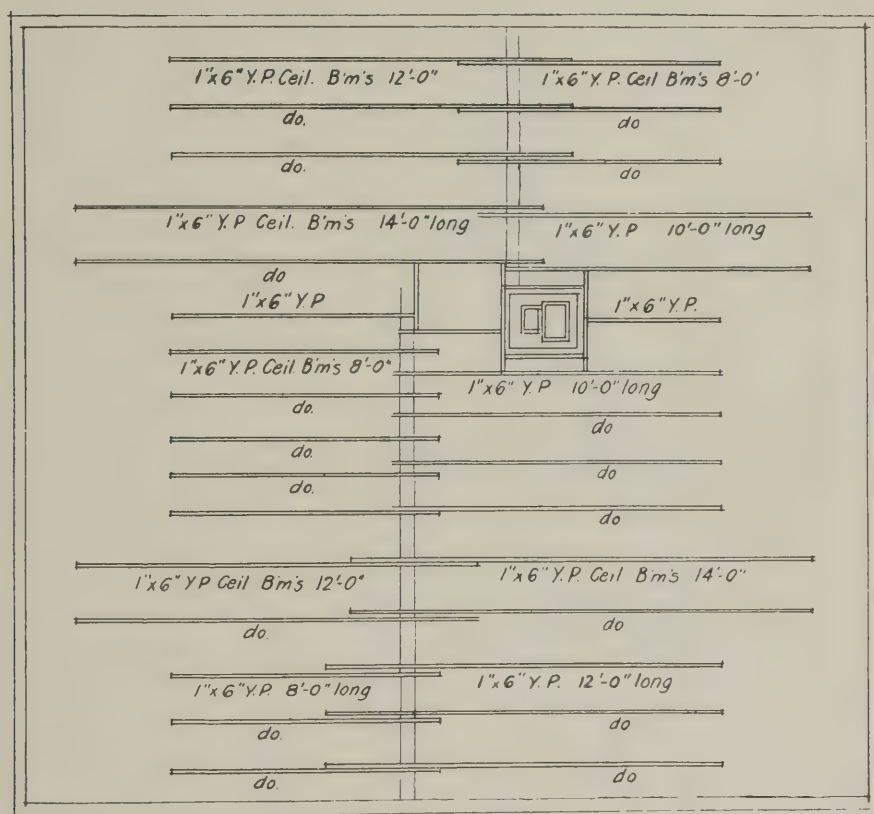 1"x6" Y.P. Ceil. B'm's 12'-0"
1"x6" Y.P. Ceil B'm's 8'-0'
do.
do
do.
do
1"x6" Y.P Ceil. B'm's 14'-0" long
1"x6" Y.P 10'-0" long
do
1"x6" Y.P
1"x6" Y.P.
1"x6" Y.P. Ceil B'm's 8'-0"
1"x6" Y.P 10'-0" long
do.
do
do.
do
do.
do
1"x6" Y P Ceil B'm's 12'-0"
1"x6" Y.P. Ceil B'm's 14'-0"
do.
do
1"x6" Y.P. 8'-0" long
1"x6" Y.P. 12'-0" long
do.
do
do.
do